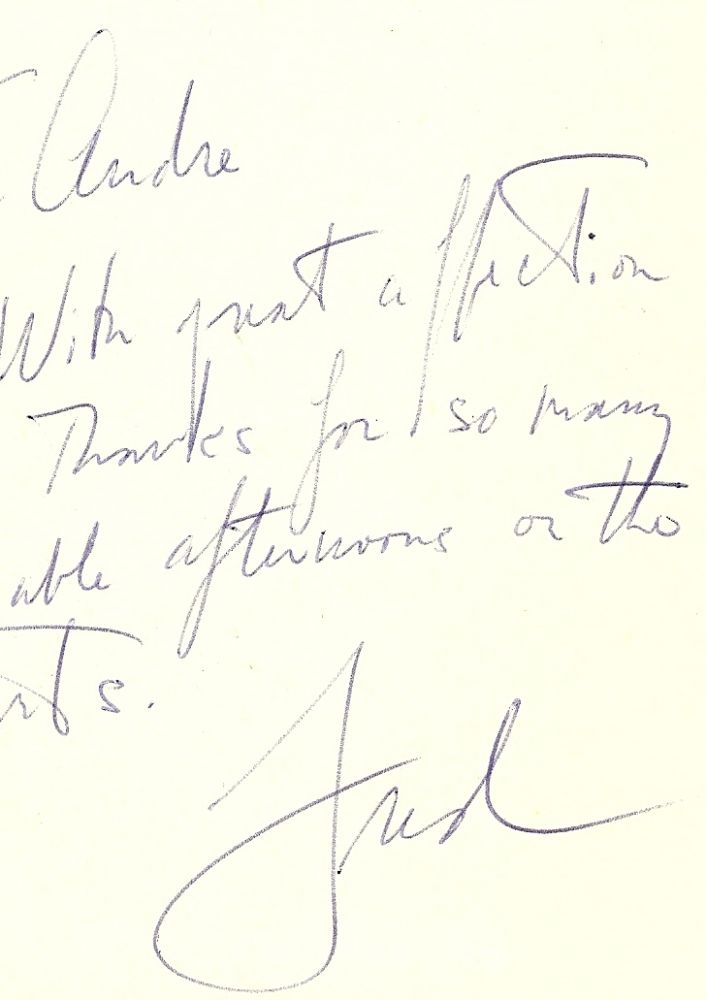 Andre
With great affection
Thanks for so many
able afternoons on the
rts.
Fred